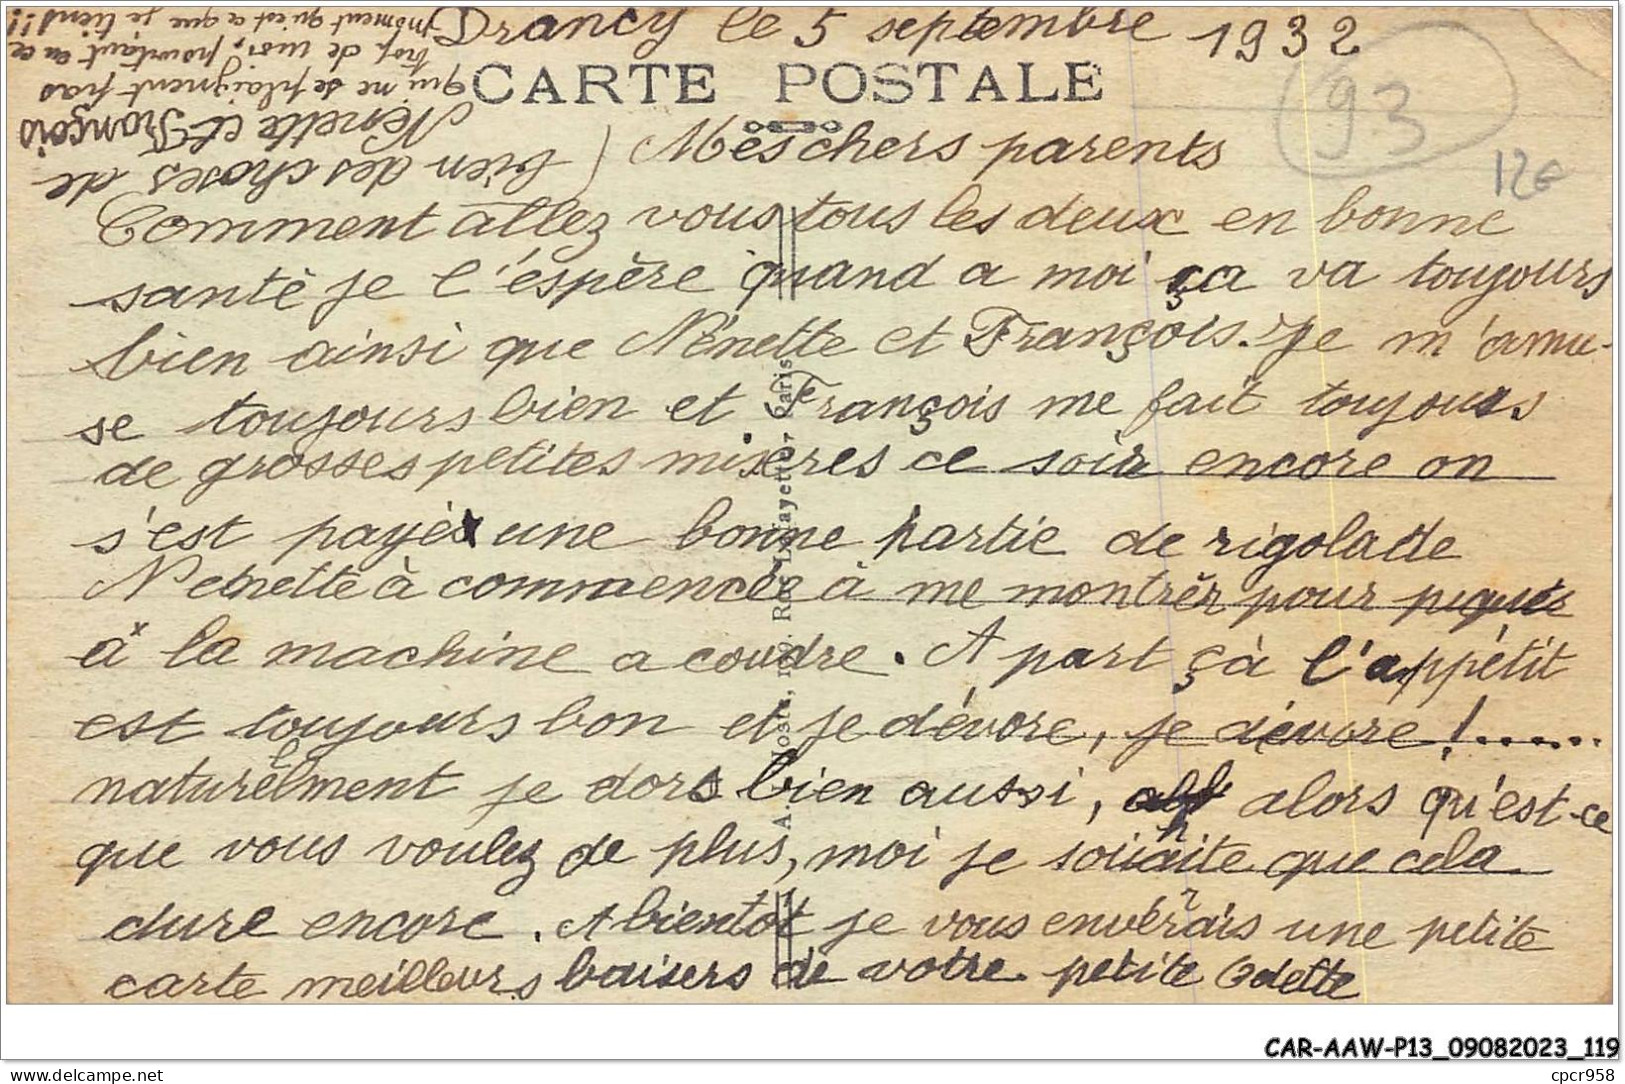 Drancy le 5 septembre 1932
CARTE POSTALE
93
12€
Mes chers parents
Comment allez vous tous les deux en bonne
santé je l'éspère quand a moi ça va toujours
bien ainsi que Nénette et François. Je m'amu-
se toujours bien et François me fait toujours
de grosses petites misères ce soir encore on
s'est payés une bonne partie de rigolade
Nenette à commencée à me montrer pour piquer
à la machine a coudre. A part çà l'appétit
est toujours bon et je dévore, je dévore!......
naturellment je dors bien aussi, alors qu'est-ce
que vous voulez de plus, moi je souhaite que cela
dure encore. A bientot je vous enverrais une petite
carte meilleurs baisers de votre petite Odette
bien des choses de
Nénette et François
qui ne se plaignent pas
trop de moi, pourtant en ce
moment qu'est ce que je tiens!!
A. Rue Lafayette, Paris
CAR-AAW-P13_09082023_119
delcampe.net
cpcr958